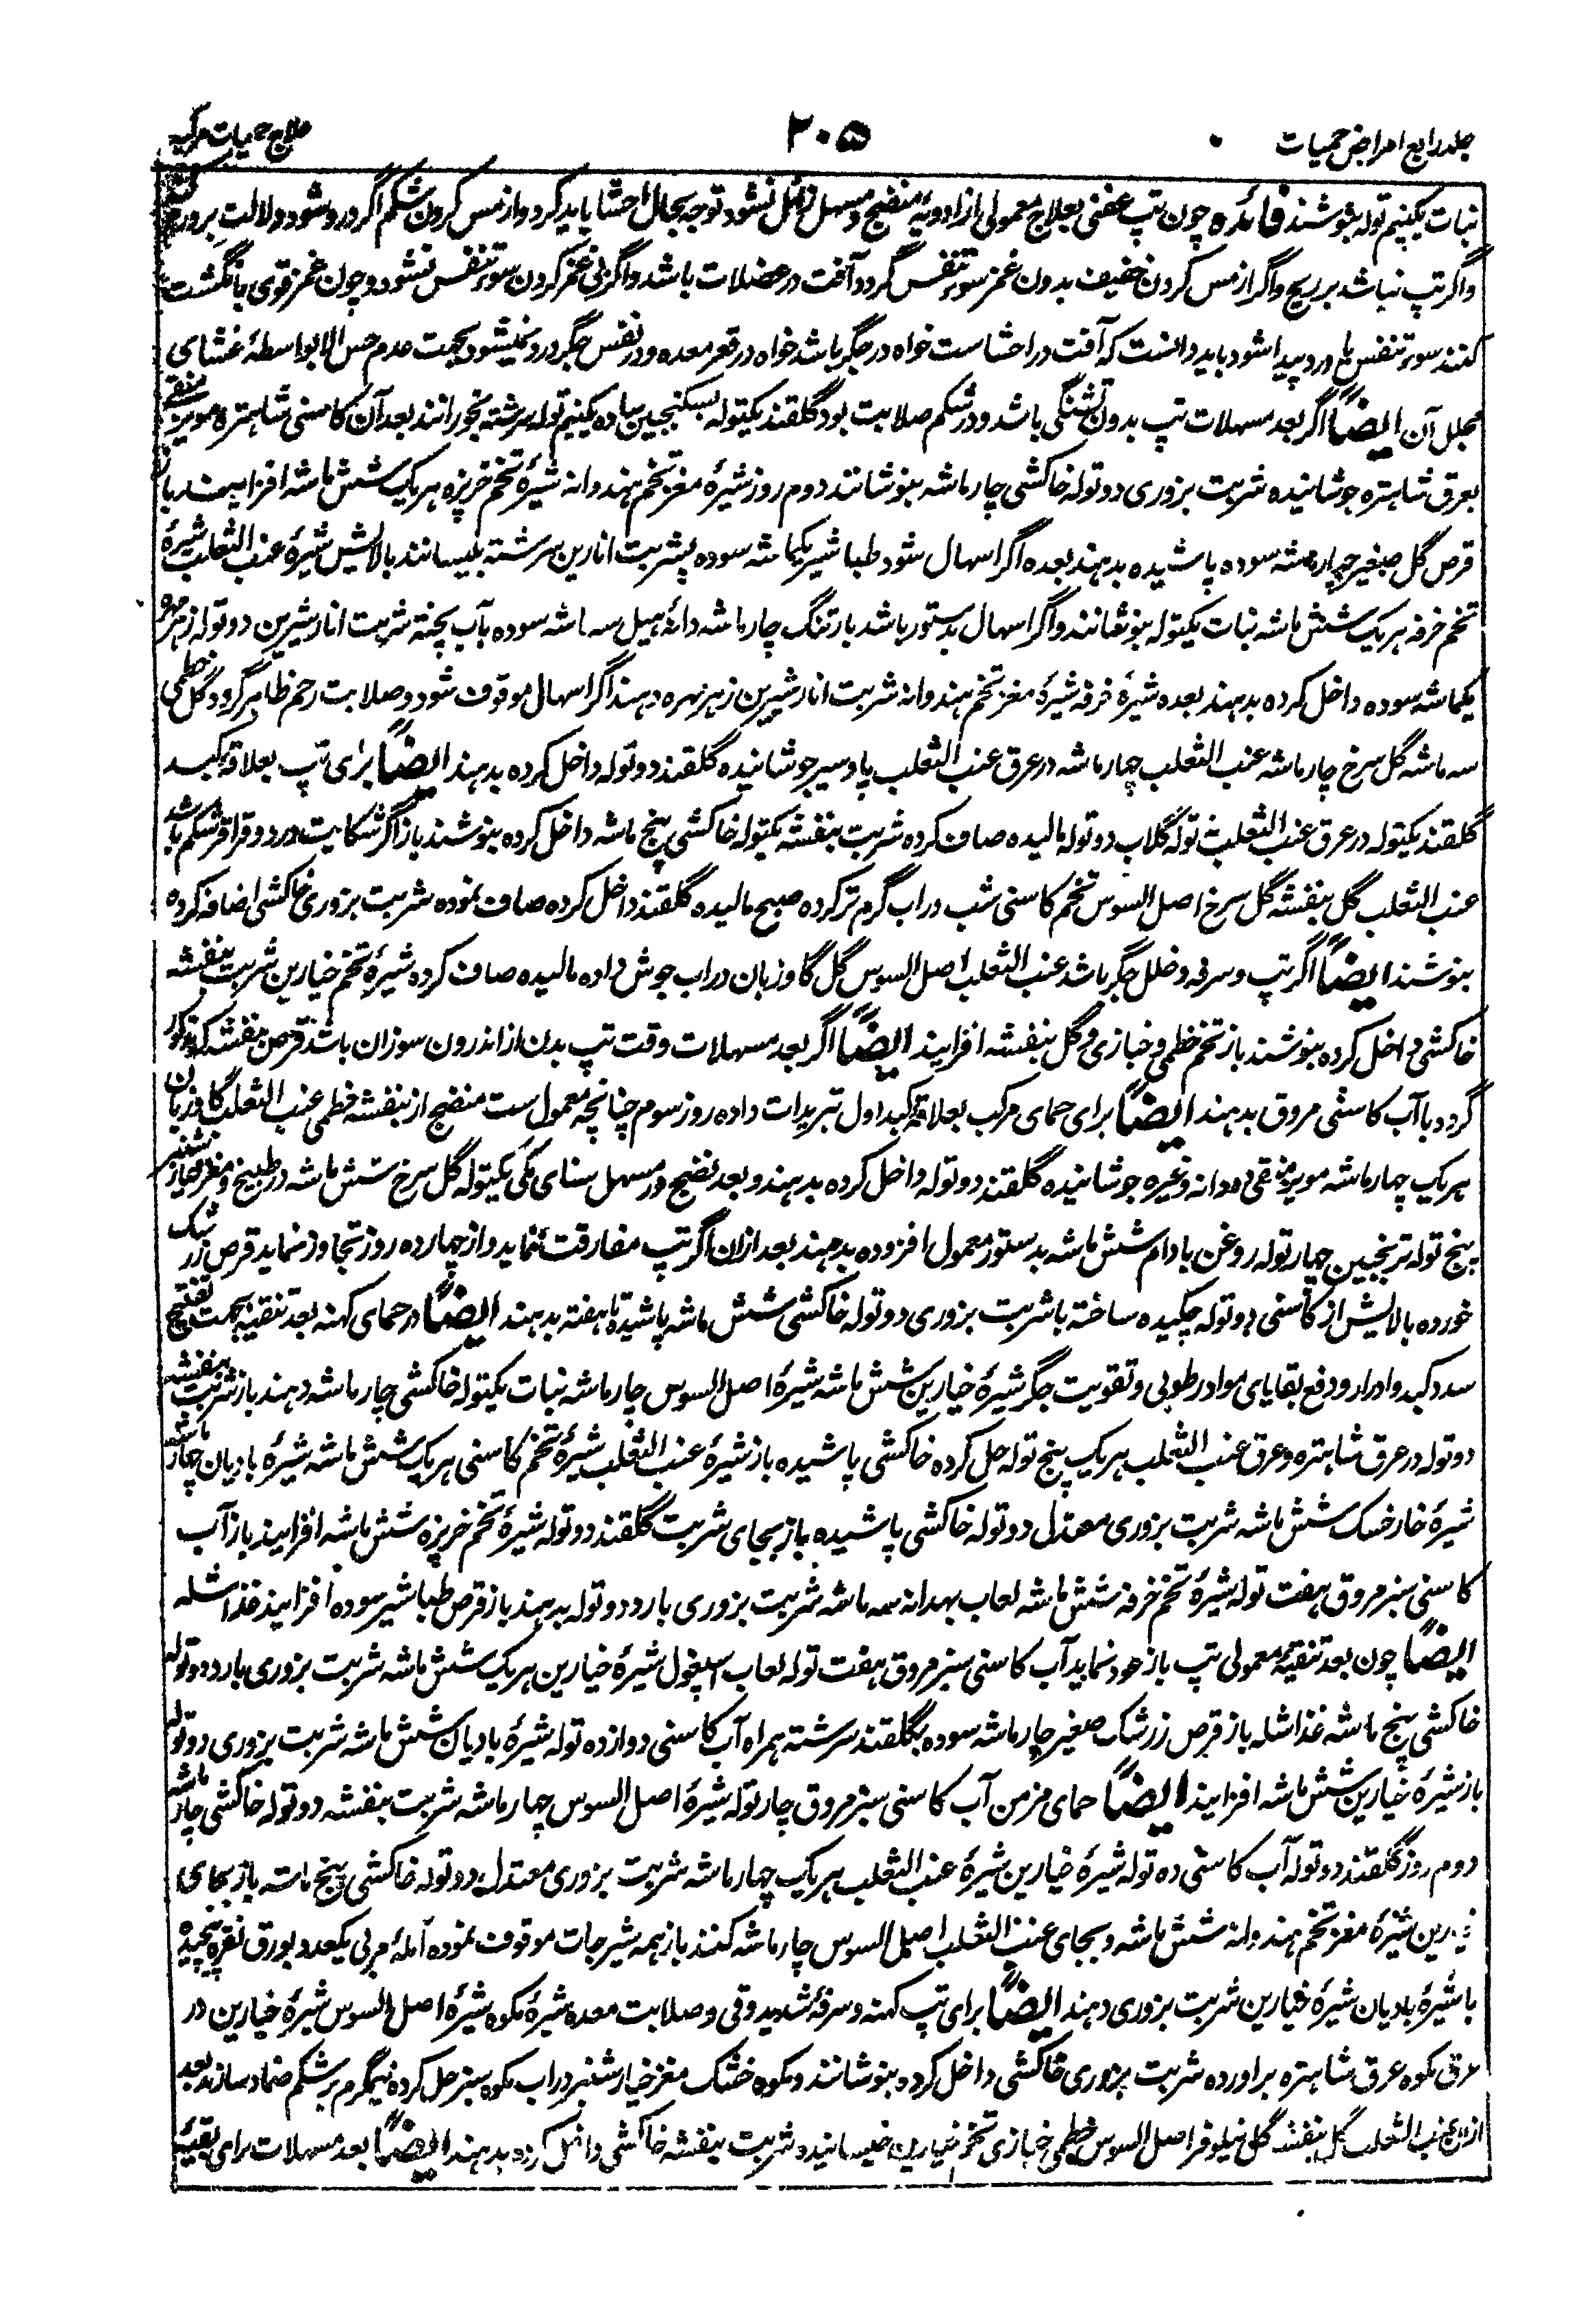 جلد رابع امراض حمیات
۲۰۵
علاج حمیات مرکبه
نبات یکنیم توله بنوشند فائده چون تپ عفنی بعلاج معمولی از ادویهٔ منضج و مسهل زائل نشود توجه بحال احشا باید کرد و از مس کردن شکم اگر درد شود دلالت بر ورم کند
و اگر تپ نباشد بر ریح و اگر از مس کردن خفیف بدون غمز سوء تنفس گردد آفت در عضلات باشد و اگر بی غمز کردن سوء تنفس نشود و چون غمز قوی بانگشت
کنند سوء تنفس یا درد پیدا شود باید دانست که آفت در احشا ست خواه در جگر باشد خواه در قعر معده و در نفس جگر درد نمیشود بجهت عدم حس الا بواسطهٔ غشای
مجلل آن ایضاً اگر بعد مسهلات تپ بدون تشنگی باشد و در شکم صلابت بود گلقند یکتوله بسکنجبین ساده یکنیم توله سرشته بخورانند بعد آن کاسنی شاهتره مویز منقی
بعرق شاهتره جوشانیده شربت بزوری دو توله خاکشی چار ماشه بنوشانند دوم روز شیرهٔ مغز تخم هندوانه شیرهٔ تخم خرپزه هر یک شش ماشه افزایند باز
قرص گل صغیر چهار ماشه سوده پاشیده بدهند بعده اگر اسهال شود طباشیر یکماشه سوده بشربت انارین سرشته بلیسانند بالایش شیرهٔ عنب الثعلب شیرهٔ
تخم خرفه هر یک شش ماشه نبات یکتوله بنوشانند و اگر اسهال بدستور باشد بارتنگ چار ماشه دانهٔ هیل سه ماشه سوده بآب پخته شربت انار شیرین دو توله زهر مهره
یکماشه سوده داخل کرده بدهند بعده شیرهٔ خرفه شیرهٔ مغز تخم هندوانه شربت انار شیرین زهر مهره دهند اگر اسهال موقوف شود و صلابت رحم ظاهر گردد گل خطمی
سه ماشه گل سرخ چار ماشه عنب الثعلب چهار ماشه در عرق عنب الثعلب پاو سیر جوشانیده گلقند دو توله داخل کرده بدهند ایضاً برای تپ بعلاقه کبد
گلقند یکتوله در عرق عنب الثعلب نه توله گلاب دو توله مالیده صاف کرده شربت بنفشه یکتوله خاکشی پنج ماشه داخل کرده بنوشند باز اگر شکایت درد و قراقر شکم باشد
عنب الثعلب گل بنفشه گل سرخ اصل السوس تخم کاسنی شب در آب گرم تر کرده صبح مالیده گلقند داخل کرده صاف نموده شربت بزوری خاکشی اضافه کرده
بنوشند ایضاً اگر تپ و سرفه و خلل جگر باشد عنب الثعلب اصل السوس گل گاوزبان در آب جوش داده مالیده صاف کرده شیرهٔ تخم خیارین شربت بنفشه
خاکشی داخل کرده بنوشند باز تخم خطمی و خبازی و گل بنفشه افزایند ایضاً اگر بعد مسهلات وقت تپ بدن از اندرون سوزان باشد قرص بنفشه که مذکور
گردد با آب کاسنی مروق بدهند ایضاً برای حمای مرکب بعلاقهٔ کبد اول تبریدات داده روز سوم چنانچه معمول ست منضج از بنفشه خطمی عنب الثعلب گاوزبان
هر یک چهار ماشه مویز منقی ده دانه وغیره جوشانیده گلقند دو توله داخل کرده بدهند و بعد نضج در مسهل سنای مکی یکتوله گل سرخ شش ماشه در طبیخ و مغز خیار شنبر
پنج توله ترنجبین چهار توله روغن بادام شش ماشه بدستور معمول افزوده بدهند بعد ازان اگر تپ مفارقت ننماید و از چهارده روز تجاوز نماید قرص زرشک
خورده بالایش از کاسنی دو توله چکیده ساخته با شربت بزوری دو توله خاکشی شش ماشه پاشیده تا هفته بدهند ایضاً در حمای کهنه بعد تنقیه بجهت تفتیح
سدد کبد و ادرار و دفع بقایای مواد رطوبی و تقویت جگر شیرهٔ خیارین شش ماشه شیرهٔ اصل السوس چار ماشه نبات یکتوله خاکشی چار ماشه دهند باز شربت بنفشه
دو توله در عرق شاهتره و عرق عنب الثعلب هر یک پنج توله حل کرده خاکشی پاشیده باز شیرهٔ عنب الثعلب شیرهٔ تخم کاسنی هر یک شش ماشه شیرهٔ بادیان چهار ماشه
شیرهٔ خار خسک شش ماشه شربت بزوری معتدل دو توله خاکشی پاشیده باز بجای شربت گلقند دو توله شیرهٔ تخم خرپزه شش ماشه افزایند باز آب
کاسنی سبز مروق هفت توله شیرهٔ تخم خرفه شش ماشه لعاب بهدانه سه ماشه شربت بزوری بارد دو توله بدهند باز قرص طباشیر سوده افزایند غذا شله
ایضاً چون بعد تنقیهٔ معمولی تپ باز عود نماید آب کاسنی سبز مروق هفت توله لعاب اسپغول شیرهٔ خیارین هر یک شش ماشه شربت بزوری بارد دو توله
خاکشی پنج ماشه غذا شله باز قرص زرشک صغیر چار ماشه سوده بگلقند سرشته همراه آب کاسنی دوازده توله شیرهٔ بادیان شش ماشه شربت بزوری دو توله
باز شیرهٔ خیارین شش ماشه افزایند ایضاً حمای مزمن آب کاسنی سبز مروق چار توله شیرهٔ اصل السوس چهار ماشه شربت بنفشه دو توله خاکشی چار ماشه
دوم روز گلقند دو توله آب کاسنی ده توله شیرهٔ خیارین شیرهٔ عنب الثعلب هر یک چهار ماشه شربت بزوری معتدل دو توله خاکشی پنج ماشه باز بجای
شیرهٔ مغز تخم هندوانه شش ماشه و بجای عنب الثعلب اصل السوس چار ماشه کنند باز همه شیرجات موقوف نموده آملهٔ مربی یکعدد بورق نقره پیچیده
با شیرهٔ بادیان شیرهٔ خیارین شربت بزوری دهند ایضاً برای تپ کهنه و سرفهٔ شدید و قی و صلابت معده شیرهٔ مکوه شیرهٔ اصل السوس شیرهٔ خیارین در
عرق مکوه عرق شاهتره برآورده شربت بزوری خاکشی داخل کرده بنوشانند و مکوه خشک مغز خیار شنبر در آب مکوه سبز حل کرده نیمگرم بر شکم ضماد سازند بعد
ازان عنب الثعلب گل بنفشه گل نیلوفر اصل السوس خطمی خبازی تخم خیارین خیسانیده شربت بنفشه خاکشی داخل کرده بدهند ایضاً بعد مسهلات برای بقیهٔ